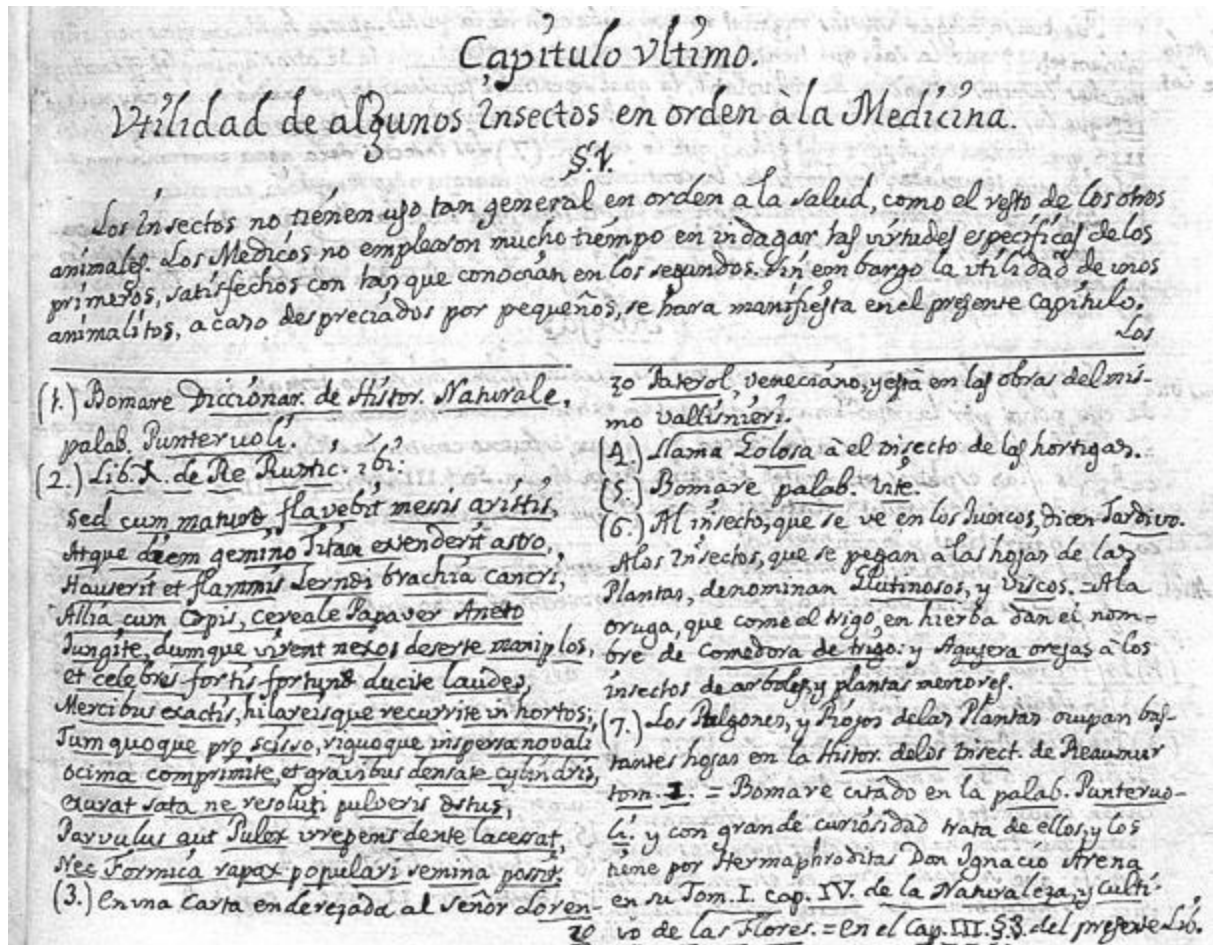 Capítulo Vltimo.
Vtilidad de algunos Insectos en orden a la Medicina.
§.1.
Los Insectos no tienen uso tan general en orden a la salud, como el resto de los otros
animales. Los Medicos no emplearon mucho tiempo en indagar las virtudes especificas de los
primeros, satisfechos con las que conocian en los segundos. Sin embargo la utilidad de unos
animalitos, acaso despreciados por pequeños, se hara manifiesta en el presente Capitulo.
Los
(1.) Bomare Diccionar. de Histor. Naturale,
palab. Punteruoli.
(2.) Lib. X. de Re Rustic. ibi:
Sed cum maturis flavebit messis aristis,
Atque diem gemino Titan extenderit astro,
Hauserit et flammis Lernæi brachia cancri,
Allia cum Cepis, cereale Papaver Aneto
Jungite, dumque virent nexos deferte maniplos,
et celebres fortis fortunæ dicite laudes,
Mercibus exactis, hilareisque recurrite in hortos;
Tum quoque proscisso, riguoque inspersa novali
ocima comprimite, et gravibus densate cylindris,
exurat sata ne resoluti pulveris æstus,
Parvulus aut Pulex irrepens dente lacessat,
Nec Formica rapax populari semina possit.
(3.) En una Carta enderezada al señor Loren-
zo
zo Paterol, veneciano, y está en las obras del mis-
mo Vallisnieri.
(4.) Llama Golosa â el insecto de las hortigas.
(5.) Bomare palab. vite.
(6.) Al insecto, que se ve en los Juncos, dicen Tardivo.
A los Insectos, que se pegan a las hojas de las
Plantas, denominan Glutinosos, y viscos. = A la
oruga, que come el trigo, en hierba dan el nom-
bre de Comedora de trigo: y Agujera orejas â los
insectos de arboles, y plantas menores.
(7.) Los Pulgones, y Piojos de las Plantas ocupan bas-
tantes hojas en la Histor. de los Insect. de Reaumur
tom. I. = Bomare citado en la palab. Punteruo-
li. y con grande curiosidad trata de ellos, y los
tiene por Hermaphroditas Don Ignacio Arena
en su Tom. I. cap. IV. de la Naturaleza, y Culti-
vo de las Flores. = En el Cap. III. §.3. del presente Lib.